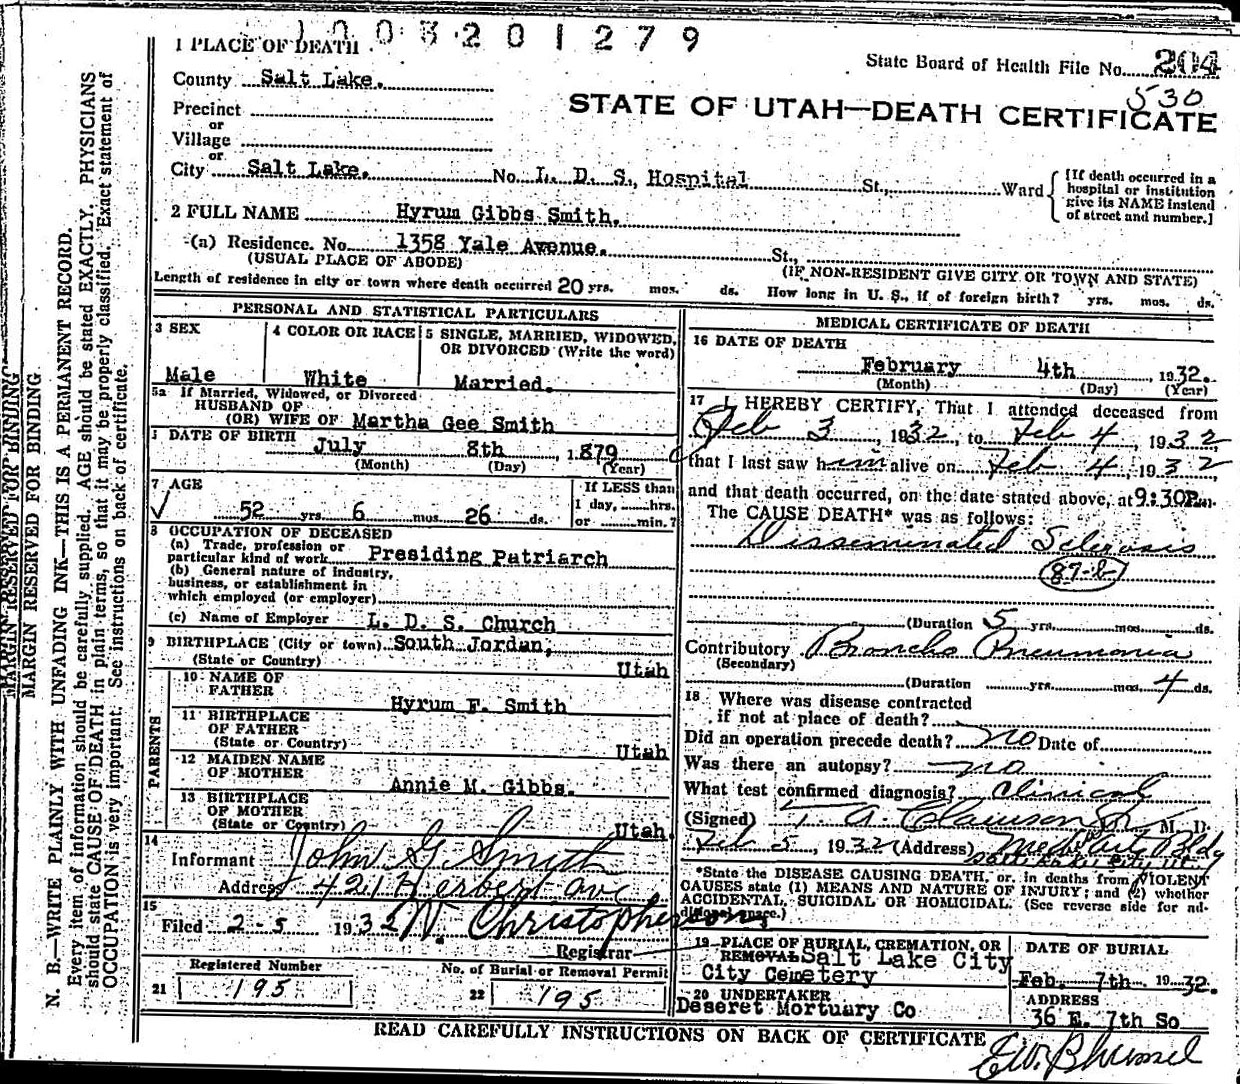 1003201279
1 PLACE OF DEATH
State Board of Health File No. 204
530
County Salt Lake.
STATE OF UTAH—DEATH CERTIFICATE
Precinct
or
Village
or
City Salt Lake. No. L. D. S., Hospital St., Ward
[If death occurred in a
hospital or institution
give its NAME instead
of street and number.]
2 FULL NAME Hyrum Gibbs Smith.
(a) Residence. No. 1358 Yale Avenue. St.,
(USUAL PLACE OF ABODE) (IF NON-RESIDENT GIVE CITY OR TOWN AND STATE)
Length of residence in city or town where death occurred 20 yrs. mos. ds. How long in U. S., if of foreign birth? yrs. mos. ds.
PERSONAL AND STATISTICAL PARTICULARS
3 SEX
Male
4 COLOR OR RACE
White
5 SINGLE, MARRIED, WIDOWED,
OR DIVORCED (Write the word)
Married.
5a If Married, Widowed, or Divorced
HUSBAND OF
(OR) WIFE OF Martha Gee Smith
DATE OF BIRTH July 8th 1879
(Month) (Day) (Year)
7 AGE
52 yrs. 6 mos. 26 ds.
If LESS than
1 day, hrs.
or min.?
8 OCCUPATION OF DECEASED
(a) Trade, profession or
particular kind of work Presiding Patriarch
(b) General nature of industry,
business, or establishment in
which employed (or employer)
(c) Name of Employer L. D. S. Church
9 BIRTHPLACE (City or town) South Jordan,
(State or Country) Utah
PARENTS
10 NAME OF
FATHER Hyrum F. Smith
11 BIRTHPLACE
OF FATHER
(State or Country) Utah
12 MAIDEN NAME
OF MOTHER Annie M. Gibbs.
13 BIRTHPLACE
OF MOTHER
(State or Country) Utah.
14
Informant John G. Smyth
Address 421 Herbert Ave
15
Filed 2-5 1932 W. Christopherson,
Registrar
Registered Number
21 195
No. of Burial or Removal Permit
22 195
MEDICAL CERTIFICATE OF DEATH
16 DATE OF DEATH
February 4th, 1932.
(Month) (Day) (Year)
17 I HEREBY CERTIFY, That I attended deceased from
Feb 3, 1932, to Feb 4, 1932
that I last saw him alive on Feb 4, 1932,
and that death occurred, on the date stated above, at 9:30P.m.
The CAUSE DEATH* was as follows:
Disseminated Sclerosis
87-b
(Duration 5 yrs. mos. ds.
Contributory Broncho Pneumonia
(Secondary)
(Duration yrs. mos. 4 ds.
18 Where was disease contracted
if not at place of death?
Did an operation precede death? no Date of
Was there an autopsy? no
What test confirmed diagnosis? Clinical
(Signed) T. A. Clawson Jr M. D.
Feb 5, 1932 (Address) Med. Arts Bldg
Salt Lake City Ut
*State the DISEASE CAUSING DEATH, or, in deaths from VIOLENT
CAUSES state (1) MEANS AND NATURE OF INJURY; and (2) whether
ACCIDENTAL, SUICIDAL OR HOMICIDAL. (See reverse side for ad-
ditional space.)
19 PLACE OF BURIAL, CREMATION, OR
REMOVAL Salt Lake City
City Cemetery
DATE OF BURIAL
Feb. 7th. 1932.
20 UNDERTAKER
Deseret Mortuary Co
ADDRESS
36 E. 7th So
READ CAREFULLY INSTRUCTIONS ON BACK OF CERTIFICATE
MARGIN RESERVED FOR BINDING
MARGIN RESERVED FOR BINDING
N. B.—WRITE PLAINLY WITH UNFADING INK—THIS IS A PERMANENT RECORD.
Every item of information should be carefully supplied. AGE should be stated EXACTLY. PHYSICIANS
should state CAUSE OF DEATH in plain terms, so that it may be properly classified. Exact statement of
OCCUPATION is very important. See instructions on back of certificate.